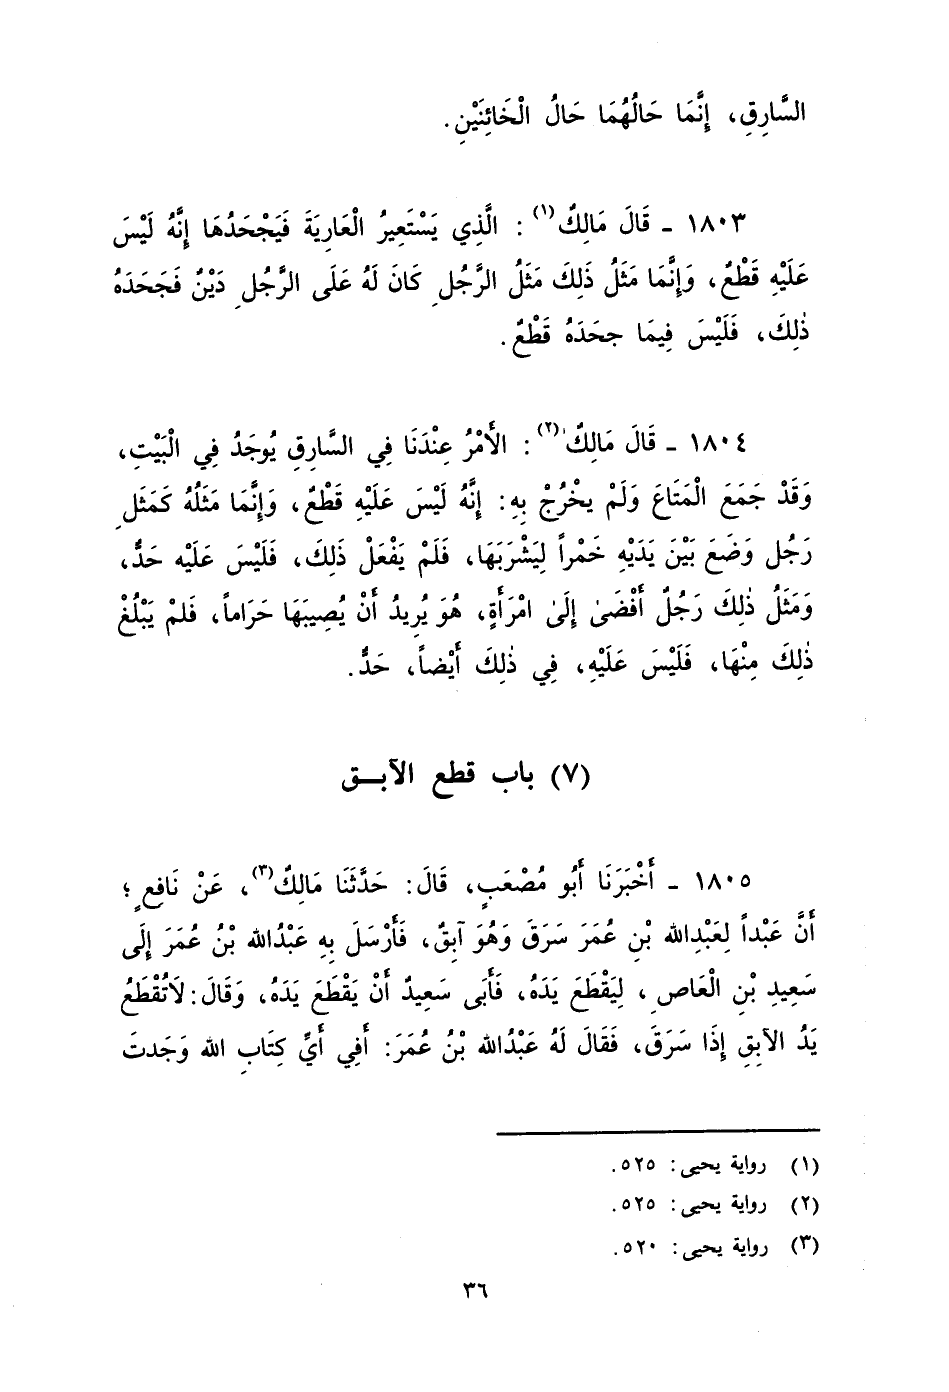 السَّارِقِ، إِنَّمَا حَالُهُمَا حَالُ الْخَائِنَيْنِ.
١٨٠٣ - قَالَ مَالِكٌ(١) : الَّذِي يَسْتَعِيرُ الْعَارِيَةَ فَيَجْحَدُهَا إِنَّهُ لَيْسَ
عَلَيْهِ قَطْعٌ، وَإِنَّمَا مَثَلُ ذَلِكَ مَثَلُ الرَّجُلِ كَانَ لَهُ عَلَى الرَّجُلِ دَيْنٌ فَجَحَدَهُ
ذٰلِكَ، فَلَيْسَ فِيمَا جحَدَهُ قَطْعٌ.
١٨٠٤ - قَالَ مَالِكٌ(٢) : الأَمْرُ عِنْدَنَا فِي السَّارِقِ يُوجَدُ فِي الْبَيْتِ،
وَقَدْ جَمَعَ الْمَتَاعَ وَلَمْ يخْرُجْ بِهِ: إِنَّهُ لَيْسَ عَلَيْهِ قَطْعٌ، وَإِنَّمَا مَثَلُهُ كَمَثَلِ
رَجُلٍ وَضَعَ بَيْنَ يَدَيْهِ خَمْراً لِيَشْرَبَهَا، فَلَمْ يَفْعَلْ ذَلِكَ، فَلَيْسَ عَلَيْه حَدٌّ،
وَمَثَلُ ذٰلِكَ رَجُلٌ أَفْضَىٰ إِلَىٰ امْرَأَةٍ، هُوَ يُرِيدُ أَنْ يُصِيبَهَا حَرَاماً، فَلمْ يَبْلُغْ
ذٰلِكَ مِنْهَا، فَلَيْسَ عَلَيْهِ، فِي ذٰلِكَ أَيْضاً، حَدٌّ.
(٧) باب قطع الآبـق
١٨٠٥ - أَخْبَرَنَا أَبُو مُصْعَبٍ، قَالَ: حَدَّثَنَا مَالِكٌ(٣)، عَنْ نَافِعٍ؛
أَنَّ عَبْداً لِعَبْدِالله بْنِ عُمَرَ سَرَقَ وَهُوَ آبِقٌ، فَأَرْسَلَ بِهِ عَبْدُالله بْنُ عُمَرَ إِلَى
سَعِيدِ بْنِ الْعَاصِ، لِيَقْطَعَ يَدَهُ، فَأَبَى سَعِيدٌ أَنْ يَقْطَعَ يَدَهُ، وَقَالَ: لَاتُقْطَعُ
يَدُ الآبِقِ إِذَا سَرَقَ، فَقَالَ لَهُ عَبْدُالله بْنُ عُمَرَ: أَفِي أَيِّ كِتَابِ الله وَجَدتَ
(١) رواية يحيى: ٥٢٥.
(٢) رواية يحيى: ٥٢٥.
(٣) رواية يحيى: ٥٢٠.
٣٦